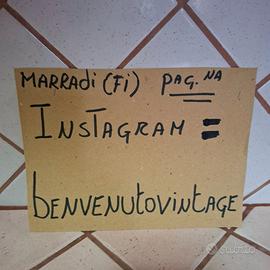 MARRADI (FI) PAG.NA
INSTAGRAM =
bENVENUtOVINtAGE
subito